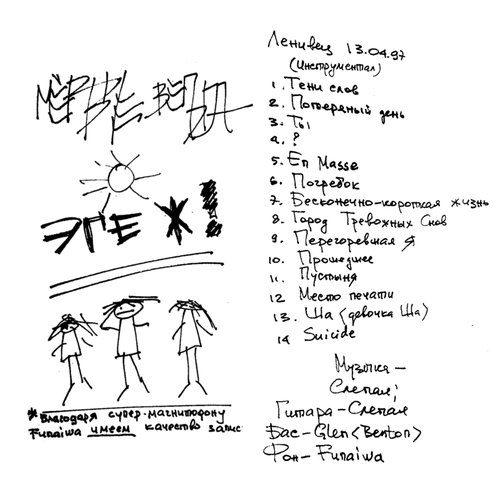 ЭГЕ Ж!
*Благодаря супер-магнитофону
Funaiwa имеем качество запис
Ленивец 13.04.97
(инструментал)
1. Тени слов
2. Потеряный день
3. Ты
4. ?
5. En Masse
6. Погребок
7. Бесконечно-короткая жизнь
8. Город Тревожных Снов
9. Перегоревшая Я
10. Прошедшее
11. Пустыня
12 Место печати
13. Ша <девочка Ша>
14 Suicide
Музыка –
Слепая;
Гитара – Слепая
Бас – Glen <Benton>
Фон – Funaiwa